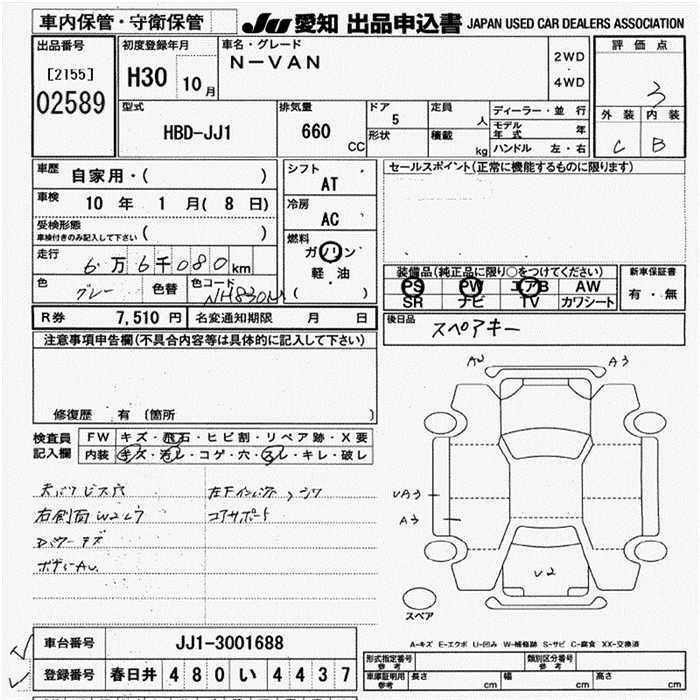 車内保管・守衛保管
JU 愛知 出品申込書 JAPAN USED CAR DEALERS ASSOCIATION
出品番号
[2155]
02589
初度登録年月
H30 10月
車名・グレード
N-VAN
2WD
・
4WD
評価点
3
外装 内装
C B
型式
HBD-JJ1
排気量
660
CC
ドア
5
形状
定員
人
積載
kg
ディーラー・並行
モデル年式 年
ハンドル 左・右
車歴
自家用・( )
車検
10年 1月( 8日)
受検形態
車検付きのみ記入して下さい ( )
走行
6万6千080km
色
グレー
色替
色コード
NH830M
シフト
AT
冷房
AC
燃料
ガソリン
軽・油
( )
セールスポイント(正常に機能するものに限ります)
装備品(純正品に限り○をつけてください)
PS PW エアB AW
SR ナビ TV カワシート
新車保証書
有・無
R券 7,510 円 名変通知期限 月 日
後日品
スペアキー
注意事項申告欄(不具合内容等は具体的に記入して下さい)
修復歴 有 〔箇所 〕
検査員
記入欄
FW キズ・飛石・ヒビ割・リペア跡・X要
内装 キズ・汚レ・コゲ・穴・スレ・キレ・破レ
天バリビス穴
右側面W2レワ
Dパワーキズ
ボディーAU
コアサポート
A3
UA3
A3
U2
スペア
A-キズ E-エクボ U-凹み W-補修跡 S-サビ C-腐食 XX-交換済
車台番号 JJ1-3001688
登録番号 春日井 480 い 4437
形式指定番号
参考
類別区分番号
参考
車庫証明用
参考
長さ cm 幅 cm 高さ cm